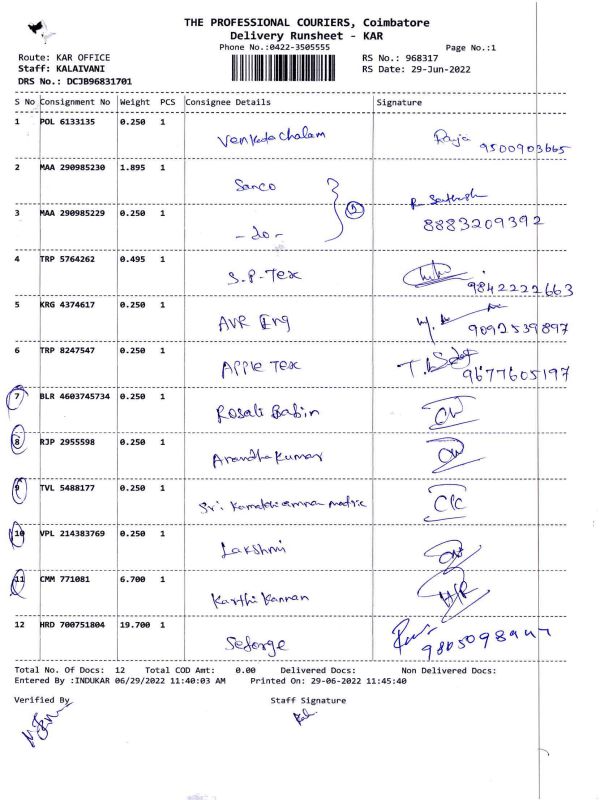 THE PROFESSIONAL COURIERS, Coimbatore
Delivery Runsheet - KAR
Phone No.:0422-3505555
Page No.:1
Route: KAR OFFICE
RS No.: 968317
Staff: KALAIVANI
RS Date: 29-Jun-2022
DRS No.: DCJB96831701
S No Consignment No Weight PCS Consignee Details Signature
1 POL 6133135 0.250 1 Venkadachalam Raja 9500903665
2 MAA 290985230 1.895 1 Sanco
3 MAA 290985229 0.250 1 - do - 8883209392
4 TRP 5764262 0.495 1 S.P. Tex 9842222663
5 KRG 4374617 0.250 1 AVR Eng 9092539897
6 TRP 8247547 0.250 1 Apple Tex 9677605197
7 BLR 4603745734 0.250 1 Rosali Babin
8 RJP 2955598 0.250 1 Anandha Kumar
9 TVL 5488177 0.250 1 Sri matric
10 VPL 214383769 0.250 1 Lakshmi
11 CMM 771081 6.700 1 Karthi Kannan
12 HRD 700751804 19.700 1 Seforge
Total No. Of Docs: 12 Total COD Amt: 0.00 Delivered Docs: Non Delivered Docs:
Entered By :INDUKAR 06/29/2022 11:40:03 AM Printed On: 29-06-2022 11:45:40
Verified By Staff Signature